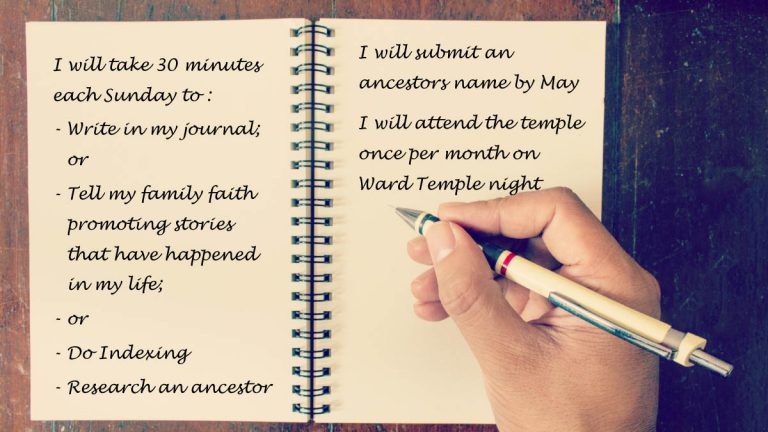 I will take 30 minutes
each Sunday to :
- Write in my journal;
or
- Tell my family faith
promoting stories
that have happened
in my life;
- or
- Do Indexing
- Research an ancestor
I will submit an
ancestors name by May
I will attend the temple
once per month on
Ward Temple night